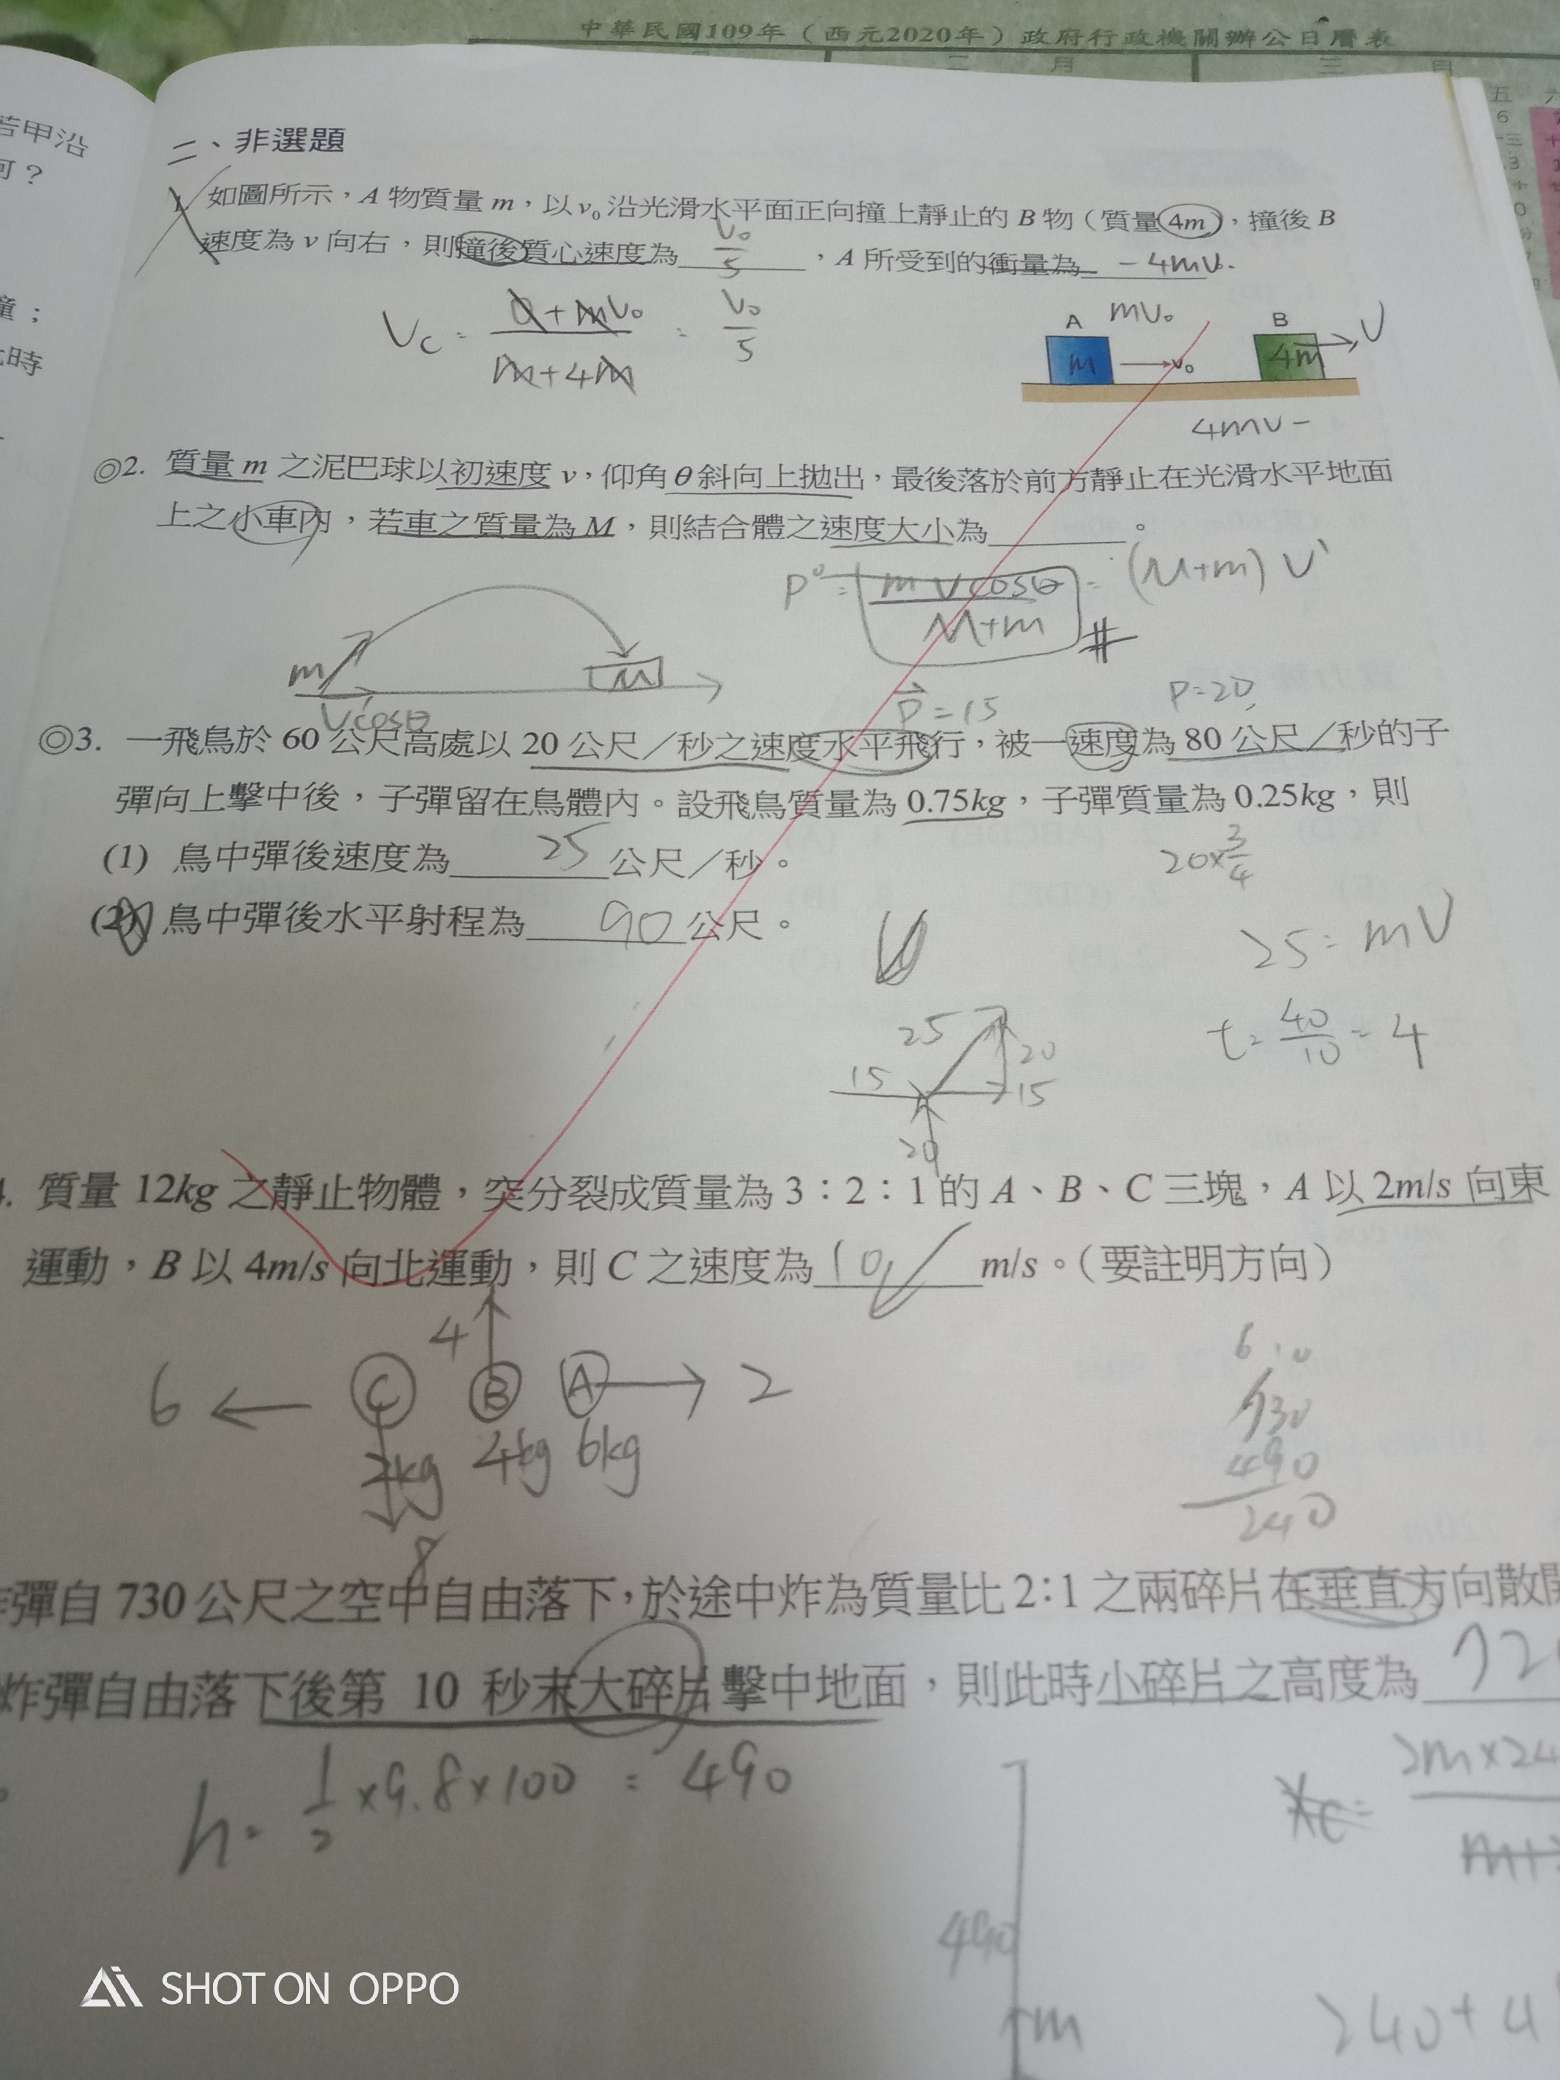 中華民國109年（西元2020年）政府行政機關辦公日曆表
二 月
三 月
五 六
6
若甲沿
可？
撞；
此時
二、非選題
1. 如圖所示，A 物質量 m，以 v₀ 沿光滑水平面正向撞上靜止的 B 物（質量 4m），撞後 B
速度為 v 向右，則撞後質心速度為 v₀/5 ，A 所受到的衝量為 -4mv.
Vc = 0+mv₀ / m+4m = v₀/5
A mv₀ B V
m v₀ 4m
4mv-
◎2. 質量 m 之泥巴球以初速度 v，仰角 θ 斜向上拋出，最後落於前方靜止在光滑水平地面
上之小車內，若車之質量為 M，則結合體之速度大小為______。
= mvcosθ / M+m = (M+m) v'
#
m M
vcosθ
P=15 P=20
◎3. 一飛鳥於 60 公尺高處以 20 公尺／秒之速度水平飛行，被一速度為 80 公尺／秒的子
彈向上擊中後，子彈留在鳥體內。設飛鳥質量為 0.75kg，子彈質量為 0.25kg，則
20×3/4
(1) 鳥中彈後速度為 25 公尺／秒。
(2) 鳥中彈後水平射程為 90 公尺。
25 = mV
t = 40/10 = 4
25 20
15 15
20
4. 質量 12kg 之靜止物體，突分裂成質量為 3：2：1 的 A、B、C 三塊，A 以 2m/s 向東
運動，B 以 4m/s 向北運動，則 C 之速度為 10 m/s。（要註明方向）
4
6 C B A 2
2kg 4kg 6kg
8
730
490
240
彈自 730 公尺之空中自由落下，於途中炸為質量比 2：1 之兩碎片在垂直方向散開
炸彈自由落下後第 10 秒末大碎片擊中地面，則此時小碎片之高度為 72
h = 1/2 ×9.8×100 = 490
Xc = 2m×24
m+
490
m
240+4
SHOT ON OPPO